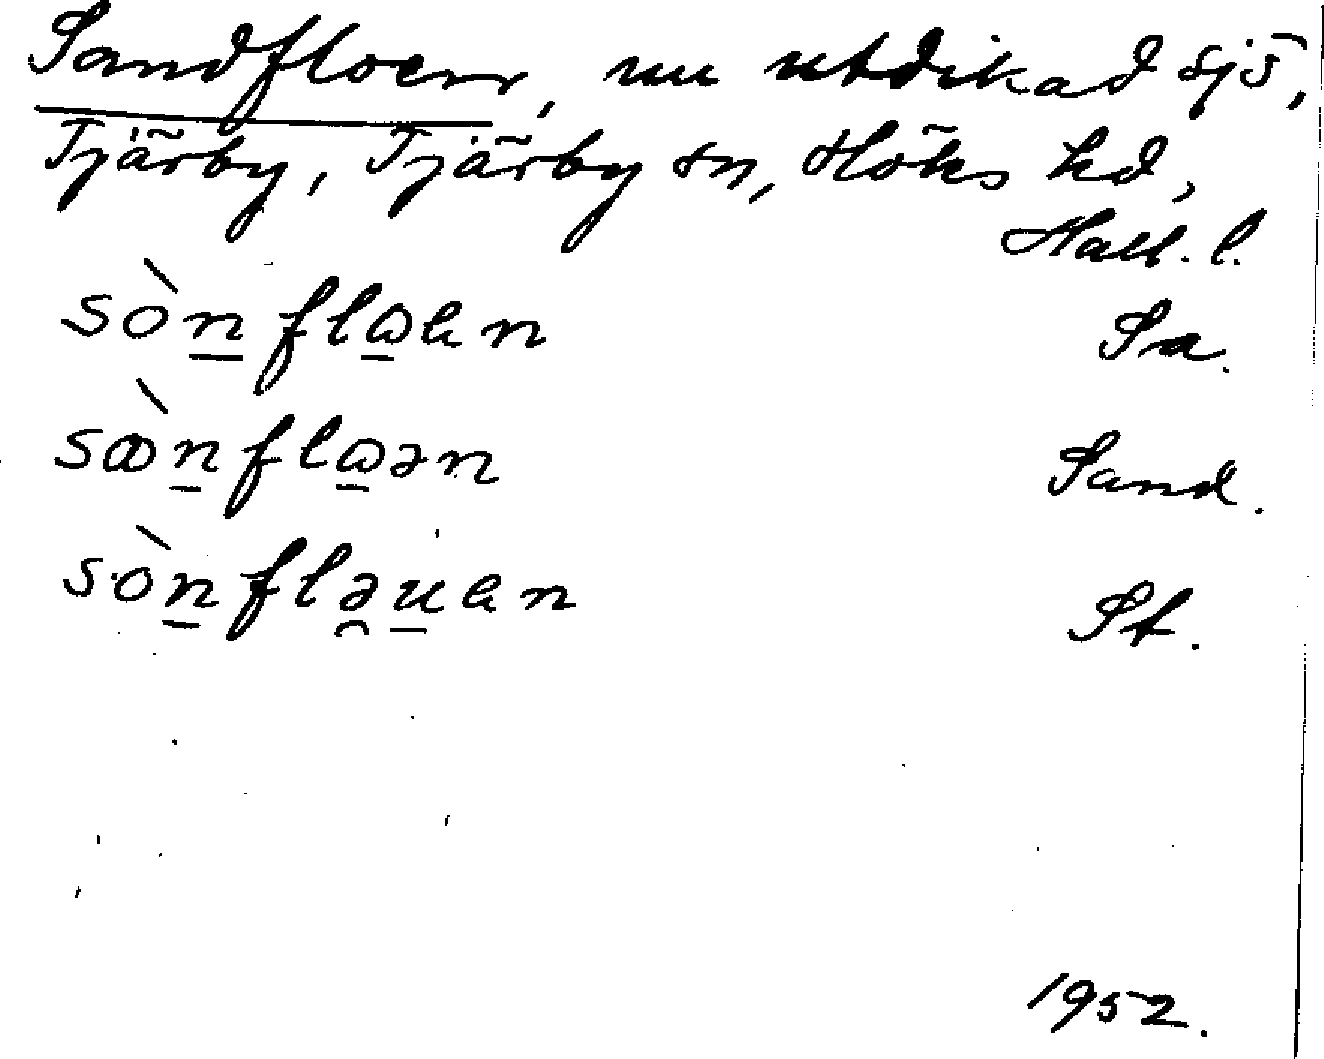 Sandfloen, nu utdikad sjö,
Tjärby, Tjärby sn, Höks hd,
Hall. l.
sòn̲flɷ̲an Sa.
sɷ̀n̲flɷ̲ən Sand.
sòn̲flə̯u̲an St.
1952.